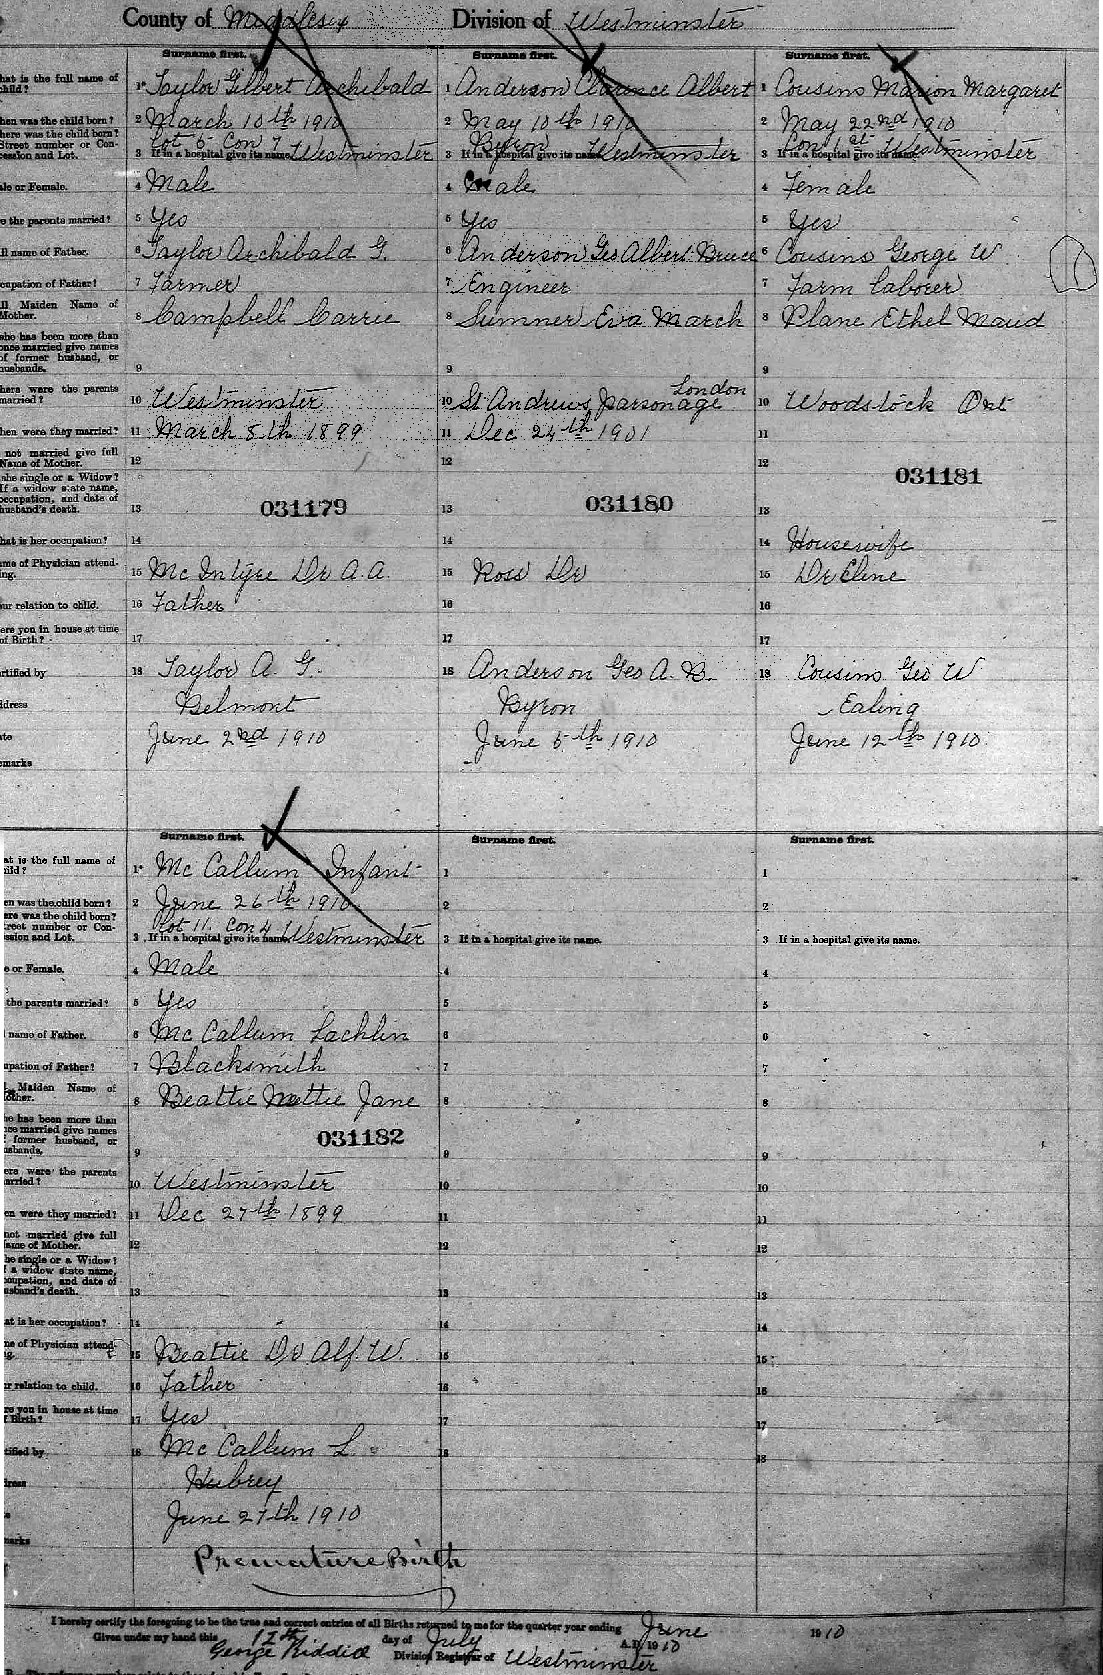 County of Middlesex Division of Westminster
Surname first. Surname first. Surname first.
hat is the full name of child? 1 Taylor Gilbert Archibald 1 Anderson Clarence Albert 1 Cousins Marion Margaret
hen was the child born? 2 March 10th 1910 2 May 10th 1910 2 May 22nd 1910
here was the child born? Street number or Con-cession and Lot. Lot 6 Con 7 Byron Con 1
3 If in a hospital give its name. Westminster 3 If in a hospital give its name. Westminster 3 If in a hospital give its name. Westminster
ale or Female. 4 Male 4 Male 4 Female
e the parents married? 5 Yes 5 Yes 5 Yes
ll name of Father. 6 Taylor Archibald G. 6 Anderson Geo Albert Bruce 6 Cousins George W
cupation of Father? 7 Farmer 7 Engineer 7 Farm laborer
ll Maiden Name of Mother. 8 Campbell Carrie 8 Sumner Eva March 8 Plane Ethel Maud
she has been more than once married give names of former husband, or husbands. 9 9 9
London
here were the parents married? 10 Westminster 10 St Andrews parsonage 10 Woodstock Ont
hen were they married? 11 March 8th 1899 11 Dec 24th 1901 11
not married give full Name of Mother. 12 12 12
031181
she single or a Widow? If a widow state name, occupation, and date of husband's death. 13 031179 13 031180 13
hat is her occupation? 14 14 14 Housewife
me of Physician attend-ing. 15 Mc Intyre Dr A.A. 15 Ross Dr 15 Dr Cline
ur relation to child. 16 Father 16 16
ere you in house at time of Birth? 17 17 17
rtified by 18 Taylor A. G. 18 Anderson Geo A. B. 18 Cousins Geo W
ddress Belmont Byron Ealing
ate June 2nd 1910 June 5th 1910 June 12th 1910
emarks
Surname first. Surname first. Surname first.
at is the full name of hild? 1 Mc Callum Infant 1 1
en was the child born? 2 June 26th 1910 2 2
ere was the child born? treet number or Con-ession and Lot. Lot 11 Con 4
3 If in a hospital give its name. Westminster 3 If in a hospital give its name. 3 If in a hospital give its name.
e or Female. 4 Male 4 4
the parents married? 5 Yes 5 5
l name of Father. 6 Mc Callum Lachlin 6 6
upation of Father? 7 Blacksmith 7 7
l Maiden Name of other. 8 Beattie Mettie Jane 8 8
031182
he has been more than nce married give names f former husband, or usbands. 9 9 9
ere were the parents arried? 10 Westminster 10 10
en were they married? 11 Dec 27th 1899 11 11
not married give full ame of Mother. 12 12 12
he single or a Widow? f a widow state name, ccupation, and date of usband's death. 13 13 13
at is her occupation? 14 14 14
me of Physician attend-g. 15 Beattie Dr Alf. W. 15 15
ur relation to child. 16 Father 16 16
re you in house at time f Birth? 17 Yes 17 17
tified by 18 Mc Callum L 18 18
dress Hubrey
e June 27th 1910
marks
Premature Birth
I hereby certify the foregoing to be the true and correct entries of all Births returned to me for the quarter year ending June 1910
Given under my hand this 12th day of July A.D. 1910
George Riddle Division Registrar of Westminster